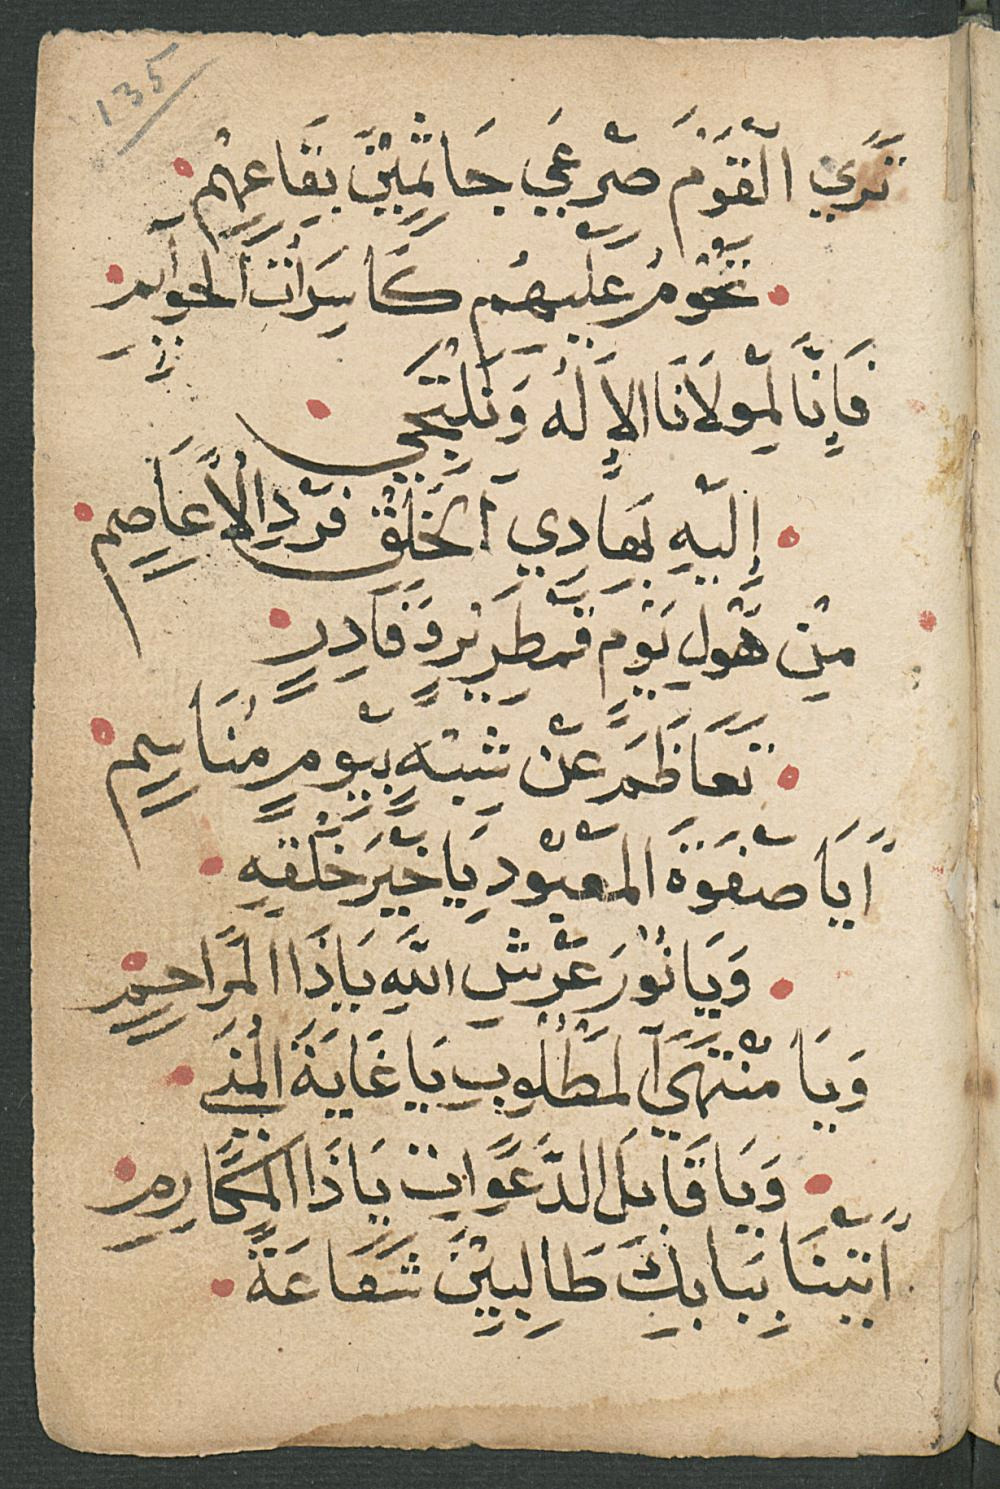 135
تَرَي الْقَوْمَ صَرْعَي جَاثِمِيْنَ بِقَاعِهِمْ
تَحُوْمُ عَلَيْهِمْ كَاسِرَاتُ الْحَوَآيِمِ
فَاِنَّا لِمَوْلَانَا الْاِلَهُ وَنَلْتَجِي
إِلَيْهِ بِهَادِي الْخَلْقِ فَرْدِ الْأَعَاصِمِ
مِنْ هَوْلِ يَوْمٍ قَمْطَرِيْرٍ وَقَادِرٍ
تَعَاظَمَ عَنْ شِبْهٍ بِيَوْمٍ مُنَاسِمٍ
اَيَا صَفْوَةَ الْمَعْبُوْدِ يَا خَيْرَ خَلْقِهِ
وَيَا نُوْرَ عَرْشِ اللّٰهِ يَا ذَا الْمَرَاحِمِ
وَيَا مُنْتَهَي الْمَطْلُوْبِ يَا غَايَةَ الْمُنَي
وَيَا قَابِلَ الدَّعَوَاتِ يَا ذَا الْمَكَارِمِ
اَتَيْنَا بِبَابِكَ طَالِبِيْنَ شَفَاعَةً